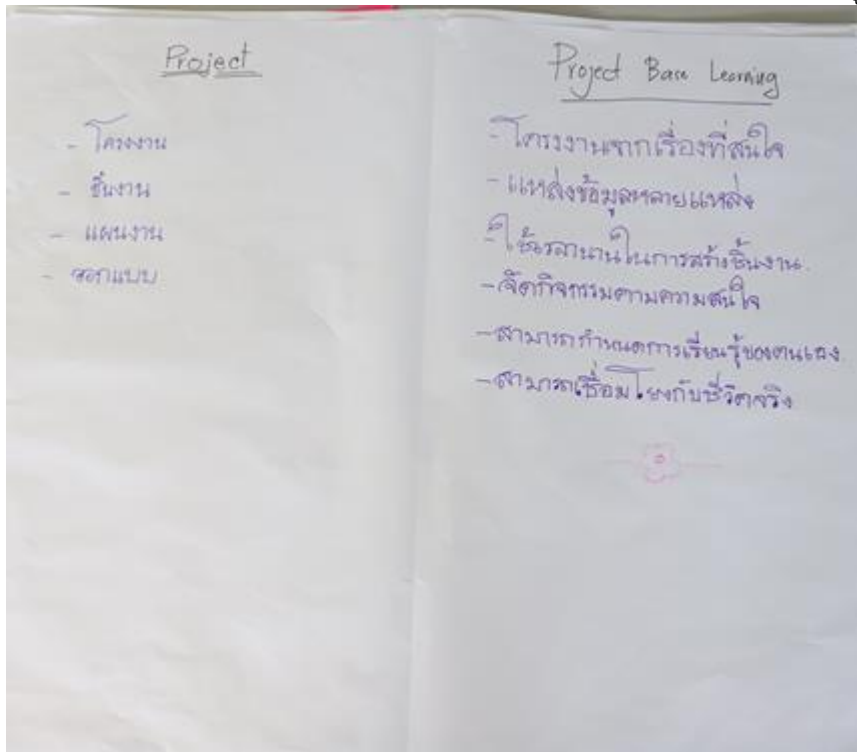 Project
- โครงงาน
- ชิ้นงาน
- แผนงาน
- ออกแบบ
Project Base Learning
- โครงงานจากเรื่องที่สนใจ
- แหล่งข้อมูลหลายแหล่ง
- ใช้เวลานานในการสร้างชิ้นงาน
- จัดกิจกรรมตามความสนใจ
- สามารถกำหนดการเรียนรู้ของตนเอง
- สามารถเชื่อมโยงกับชีวิตจริง